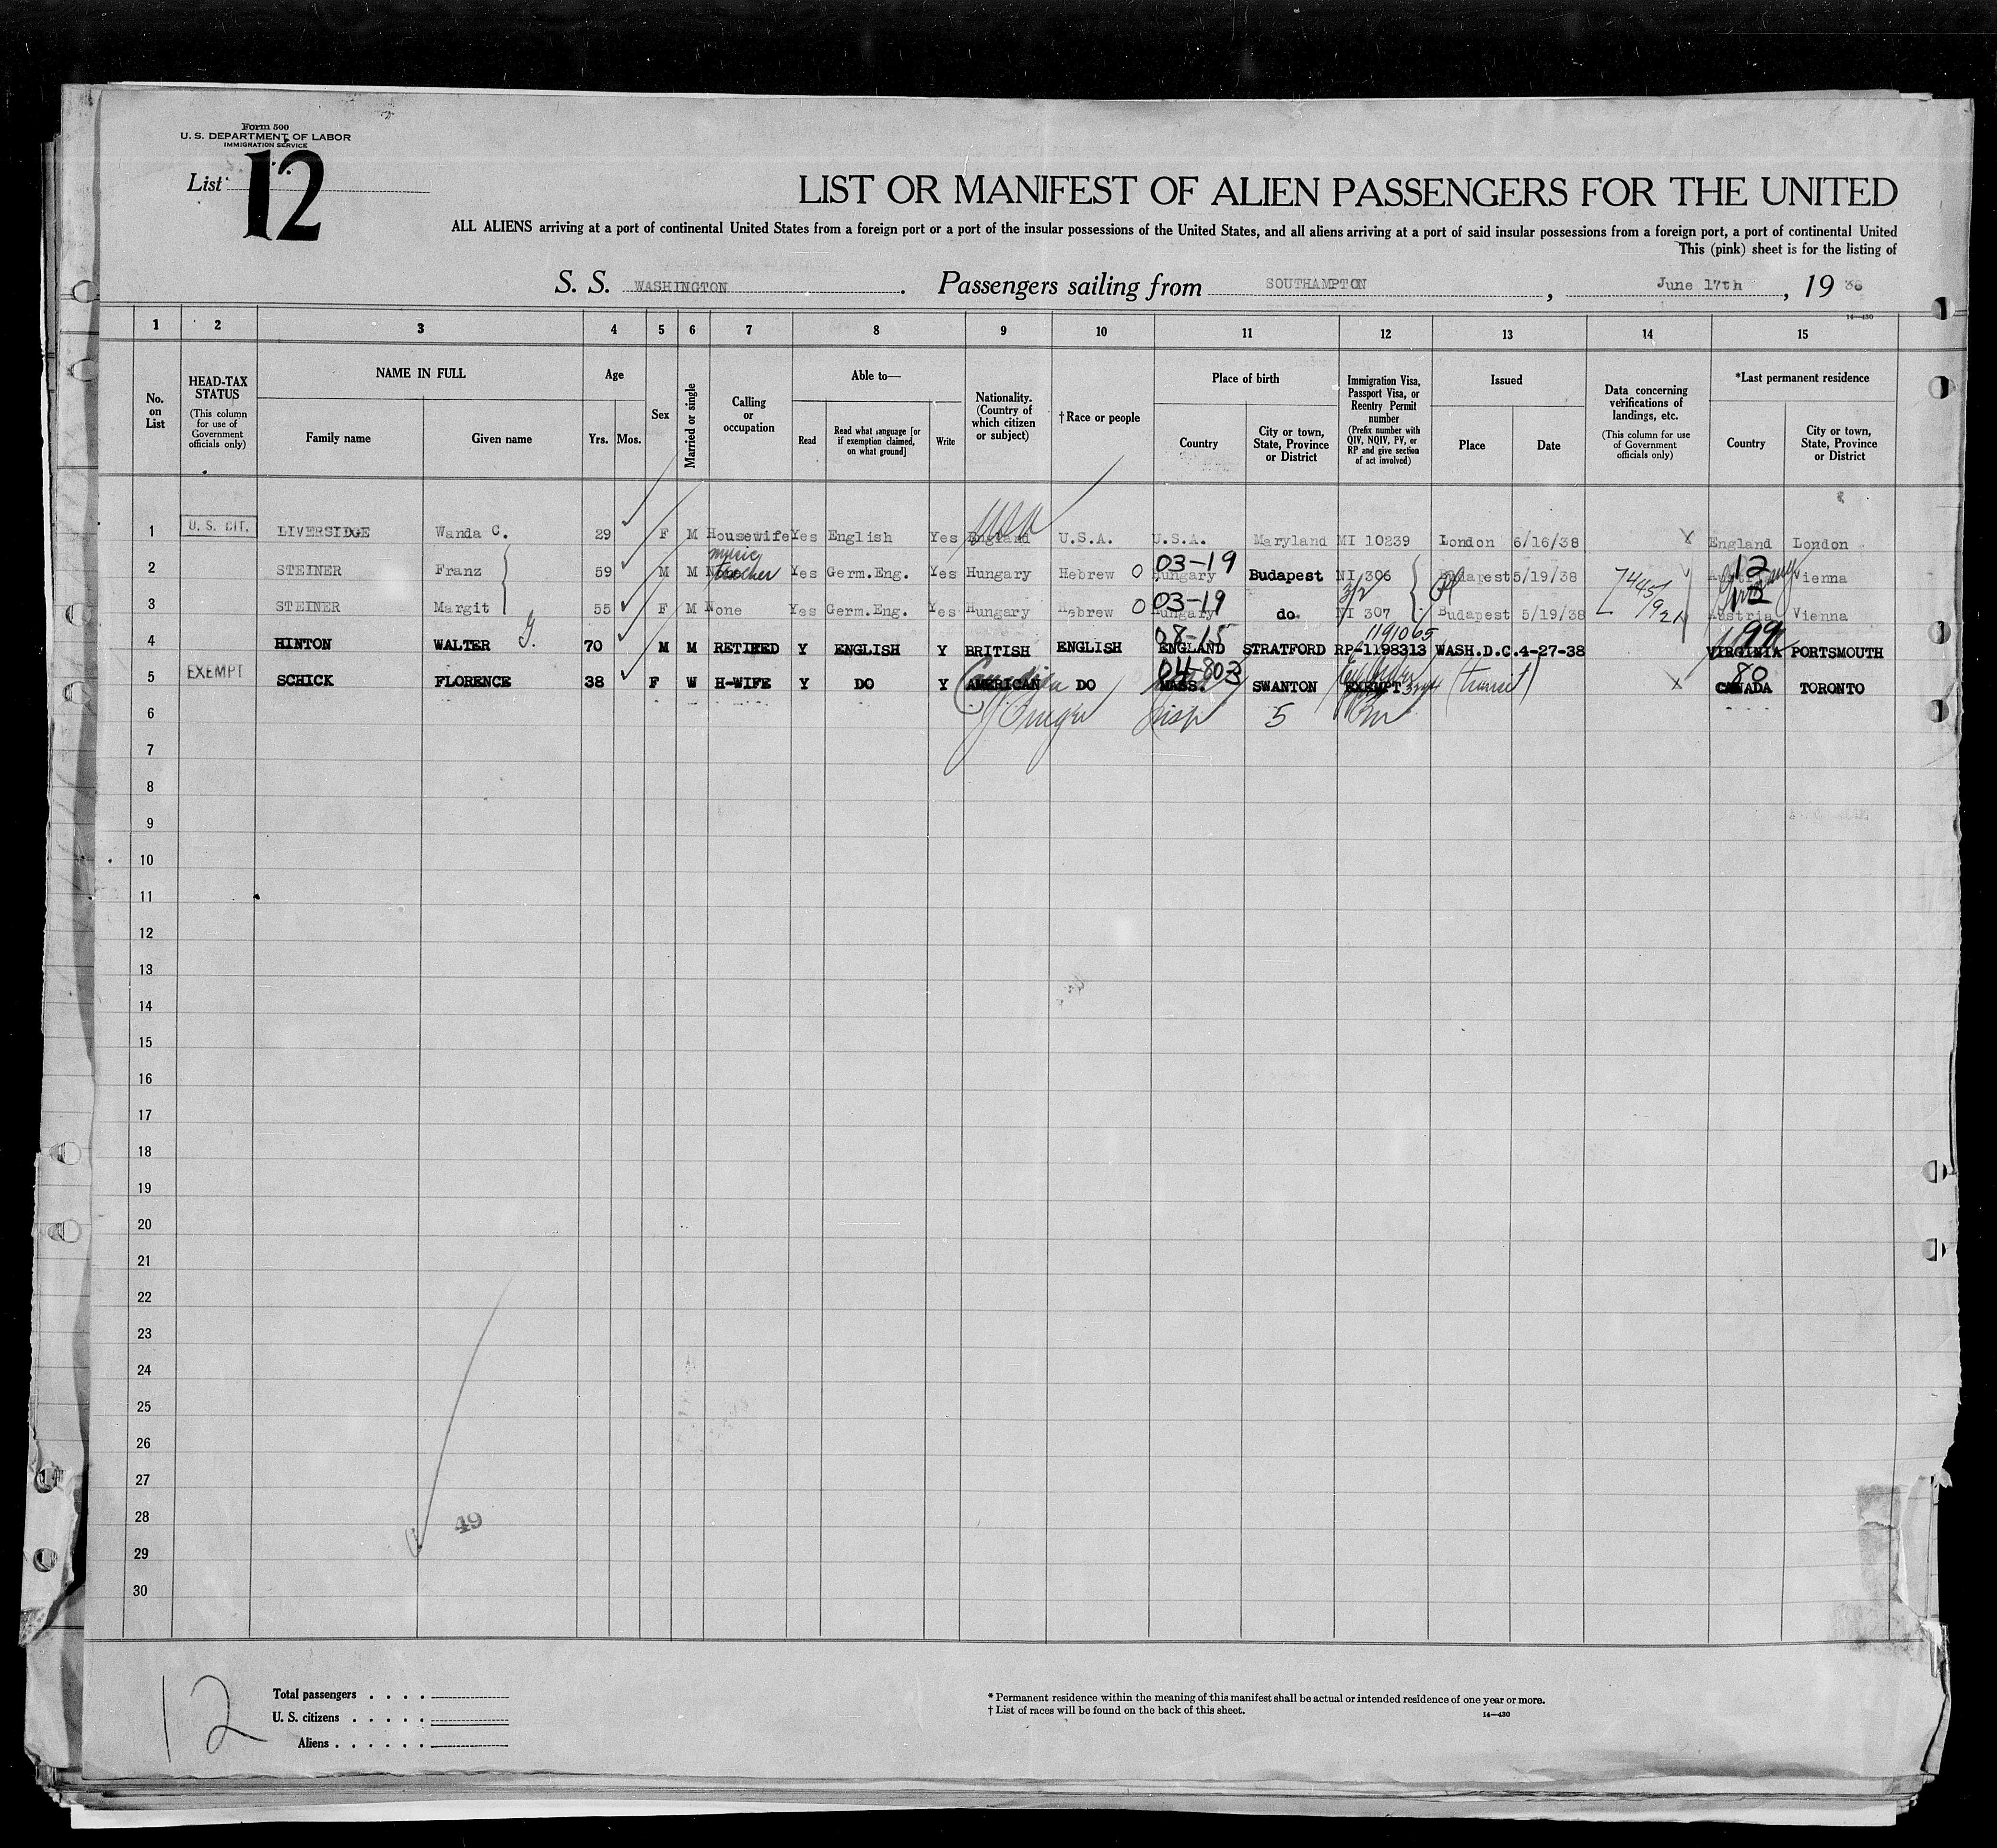 Form 500
U. S. DEPARTMENT OF LABOR
IMMIGRATION SERVICE
List 12
LIST OR MANIFEST OF ALIEN PASSENGERS FOR THE UNITED
ALL ALIENS arriving at a port of continental United States from a foreign port or a port of the insular possessions of the United States, and all aliens arriving at a port of said insular possessions from a foreign port, a port of continental United
This (pink) sheet is for the listing of
S. S. WASHINGTON. Passengers sailing from SOUTHAMPTON, June 17th, 19 38
14—430
1 2 3 4 5 6 7 8 9 10 11 12 13 14 15
No. on List
HEAD-TAX STATUS
(This column for use of Government officials only)
NAME IN FULL
Family name
Given name
Age
Yrs. Mos.
Sex
Married or single
Calling or occupation
Able to—
Read
Read what language [or if exemption claimed, on what ground]
Write
Nationality. (Country of which citizen or subject)
†Race or people
Place of birth
Country
City or town, State, Province or District
Immigration Visa, Passport Visa, or Reentry Permit number
(Prefix number with QIV, NQIV, PV, or RP and give section of act involved)
Issued
Place
Date
Data concerning verifications of landings, etc.
(This column for use of Government officials only)
*Last permanent residence
Country
City or town, State, Province or District
1 U. S. CIT. LIVERSIDGE Wanda C. 29 F M Housewife Yes English Yes England USA U.S.A. U.S.A. Maryland MI 10239 London 6/16/38 X England London
music
2 STEINER Franz 59 M M None teacher Yes Germ.Eng. Yes Hungary Hebrew O 03-19 Hungary Budapest NI 306 Budapest 5/19/38 12 Austria Germany Vienna
3 STEINER Margit 55 F M None Yes Germ.Eng. Yes Hungary Hebrew O 03-19 Hungary do. NI 307 Budapest 5/19/38 12 Austria Vienna
7445/921
1191065
4 HINTON WALTER G. 70 M M RETIRED Y ENGLISH Y BRITISH ENGLISH 08-15 ENGLAND STRATFORD RP-1198313 WASH.D.C. 4-27-38 99 VIRGINIA PORTSMOUTH
5 EXEMPT SCHICK FLORENCE 38 F W H-WIFE Y DO Y AMERICAN Canadian DO 04-803 MASS. SWANTON EXEMPT (transit) X 80 CANADA TORONTO
6 Insp 5
7
8
9
10
11
12
13
14
15
16
17
18
19
20
21
22
23
24
25
26
27
28 49
29
30
12
Total passengers . . . .
U. S. citizens . . . . .
Aliens . . . . . .
* Permanent residence within the meaning of this manifest shall be actual or intended residence of one year or more.
† List of races will be found on the back of this sheet.
14—430